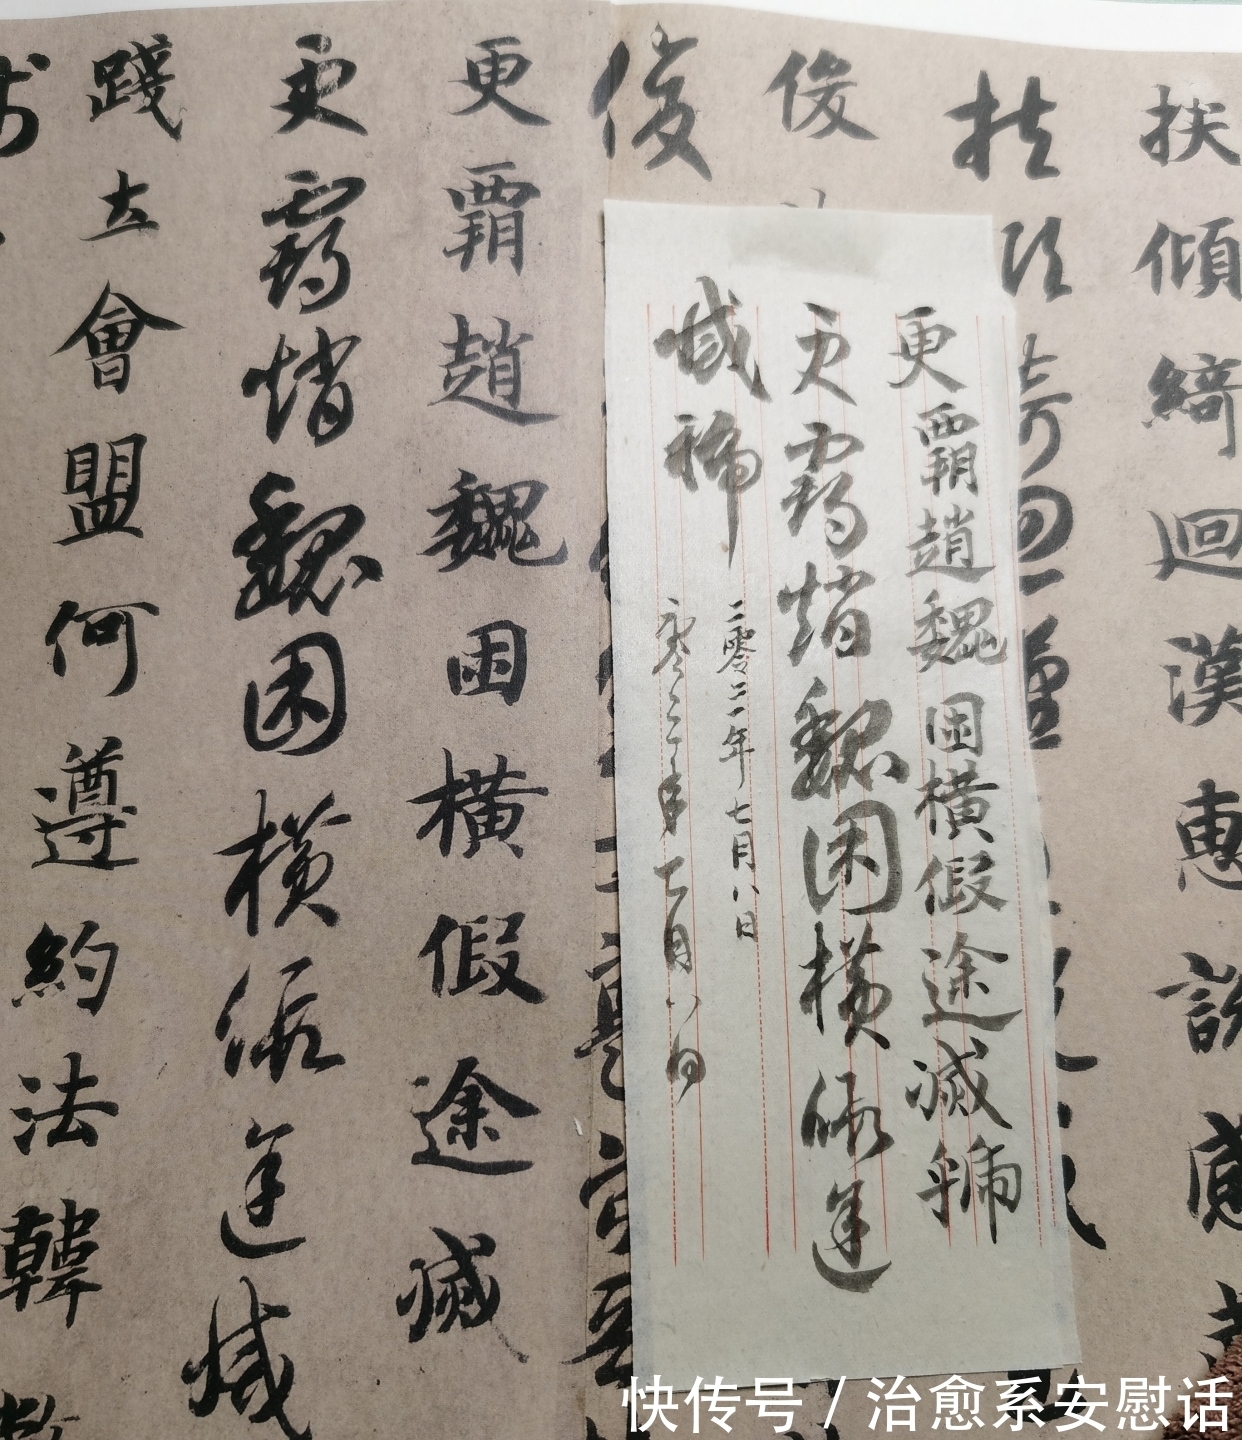 扶傾綺迴漢惠說感
扶傾綺迴漢
俊
俊
更霸趙魏困橫假途滅
更霸趙魏困橫假途滅
踐土會盟何遵約法韓
更霸趙魏困橫假途滅虢
更霸趙魏困橫假途
滅虢
二零二一年七月八日
二零二一年七月八日
快传号 / 治愈系安慰话